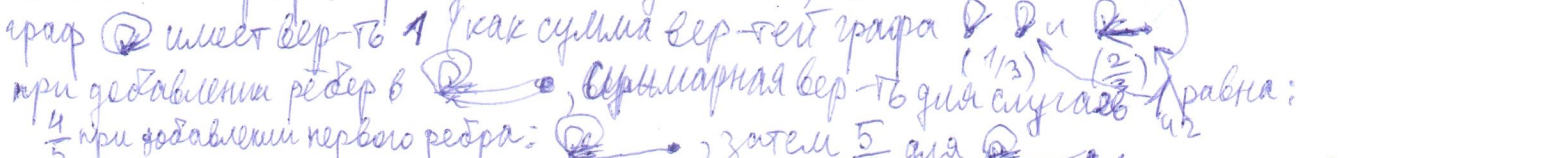 граф имеет вер-ть 1 (как сумма вер-тей графа и )
(1/3) (2/3)
при добавлении рёбер в , суммарная вер-ть для случаев 1 и 2 равна:
4/5 при добавлении первого ребра: , затем 5 для